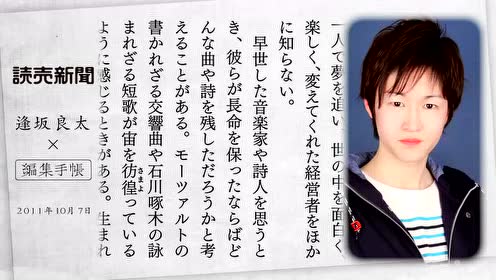 読売新聞
逢坂良太
×
編集手帳
2011年10月7日
一人で夢を追い、世の中を面白く
楽しく、変えてくれた経営者をほか
に知らない。
早世した音楽家や詩人を思うと
き、彼らが長命を保ったならばど
んな曲や詩を残しただろうかと考
えることがある。モーツァルトの
書かれざる交響曲や石川啄木の詠
さまよ
まれざる短歌が宙を彷徨っている
ように感じるときがある。生まれ